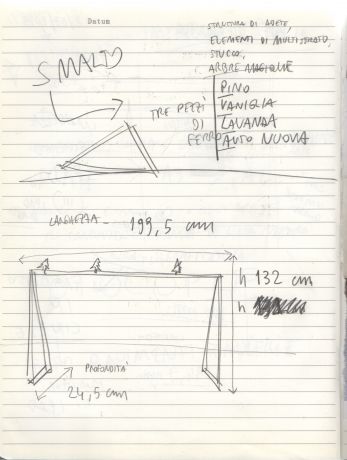 Datum
STRUTTURA DI ABETE,
ELEMENTI DI MULTISTRATO,
STUCCO,
ARBRE MAGIQUE
SMALTO
PINO
TRE PEZZI
VANIGLIA
DI
LAVANDA
FERRO
AUTO NUOVA
LARGHEZZA - 199,5 cm
h 132 cm
h
PROFONDITÀ
24,5 cm